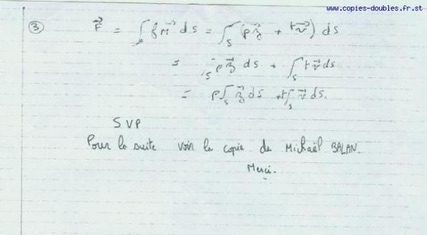 www.copies-doubles.fr.st
③ F⃗ = ∫ₛ f m⃗ ds = ∫ₛ (p ξ⃗ + t v⃗) ds
= ∫ₛ p ξ⃗ ds + ∫ₛ t v⃗ ds
= p ∫ₛ ξ⃗ ds + t ∫ₛ v⃗ ds.
SVP
Pour la suite voir la copie de Michaël BALAN.
Merci.